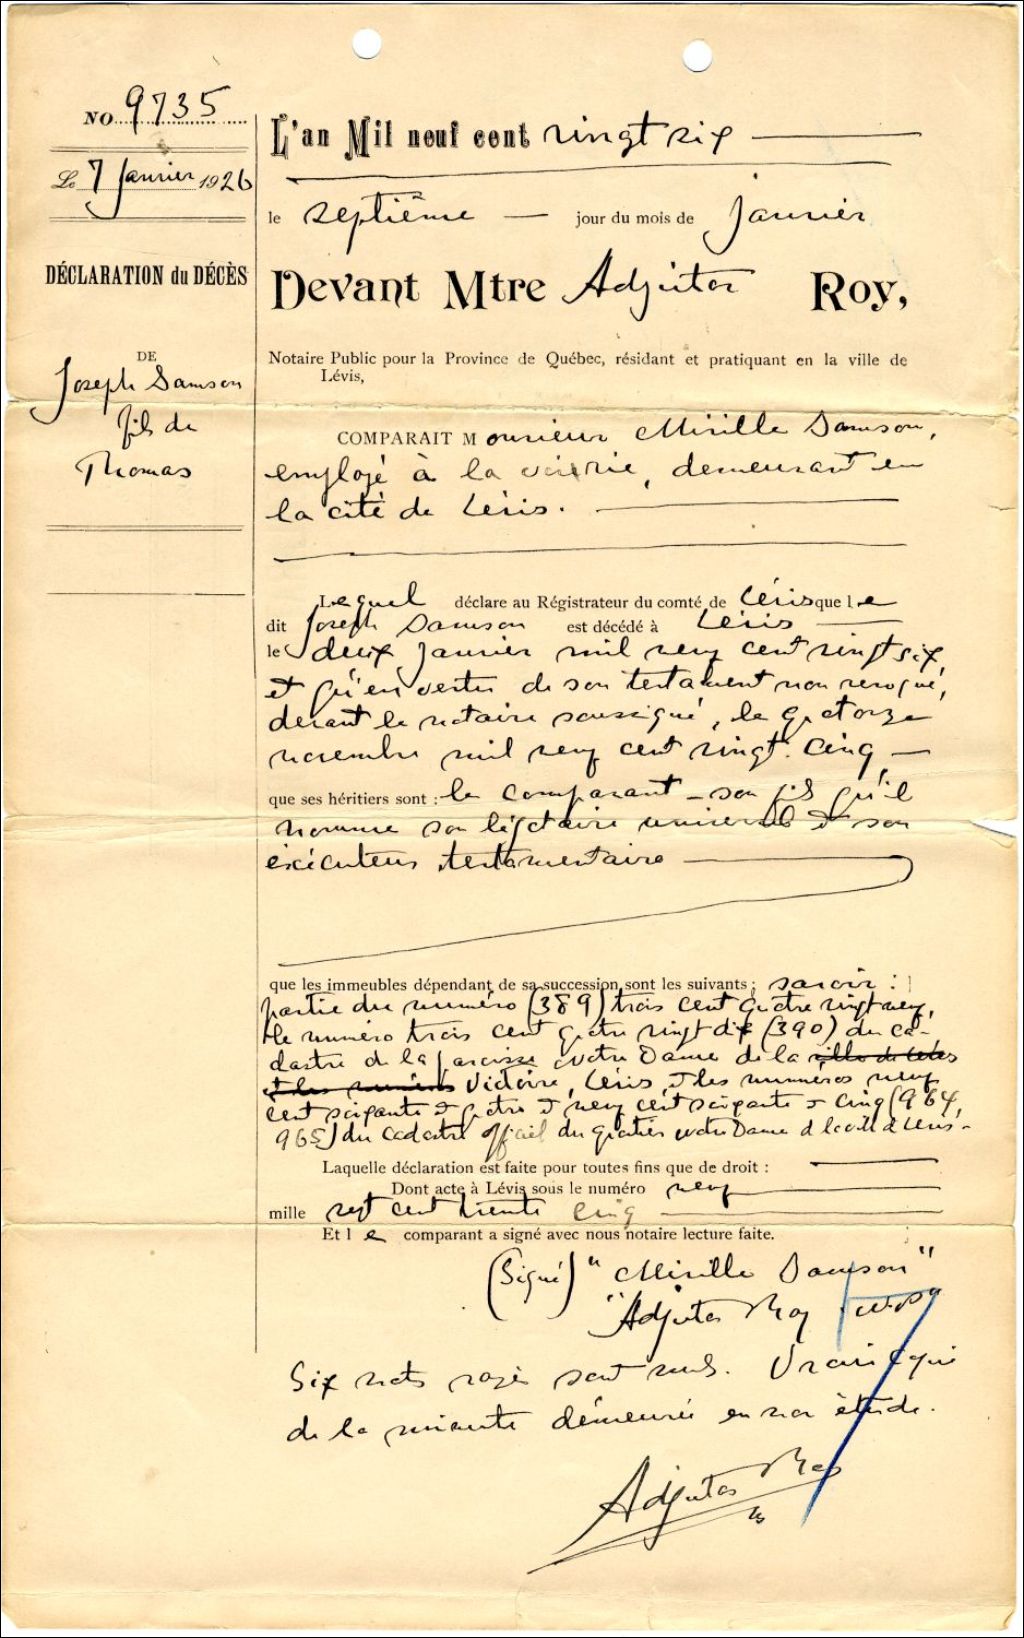 NO 9735
Le 7 Janvier 1926
DÉCLARATION du DÉCÈS
DE
Joseph Samson
fils de
Thomas
L'an Mil neuf cent vingt six
le septième jour du mois de Janvier
Devant Mtre Adjutor Roy,
Notaire Public pour la Province de Québec, résidant et pratiquant en la ville de
Lévis,
COMPARAIT Monsieur Mirille Samson,
employé à la voirie, demeurant en
la cité de Lévis.
Lequel déclare au Régistrateur du comté de Lévis que le
dit Joseph Samson est décédé à Lévis
le deux Janvier mil neuf cent vingt six,
et qu'en vertu de son testament non révoqué,
devant le notaire soussigné, le quatorze
novembre mil neuf cent vingt-cinq —
que ses héritiers sont : le comparant — son fils qu'il
nomme son légataire universel et son
exécuteur testamentaire
que les immeubles dépendant de sa succession sont les suivants : savoir :
partie du numéro (389) trois cent quatre vingt neuf,
le numéro trois cent quatre vingt dix (390) du ca-
dastre de la paroisse Notre Dame de la
et les numéros Victoire, Lévis et les numéros neuf
cent soixante et quatre et neuf cent soixante et cinq (964,
965) du cadastre officiel du quartier Notre Dame d la vill d Lévis.
Laquelle déclaration est faite pour toutes fins que de droit :
Dont acte à Lévis sous le numéro neuf
mille sept cent trente cinq
Et le comparant a signé avec nous notaire lecture faite.
(Signé) "Mirille Samson"
"Adjutor Roy
Six mots rayés sont nuls. Vraie copie
de la minute demeurée en mon étude.
Adjutor Roy